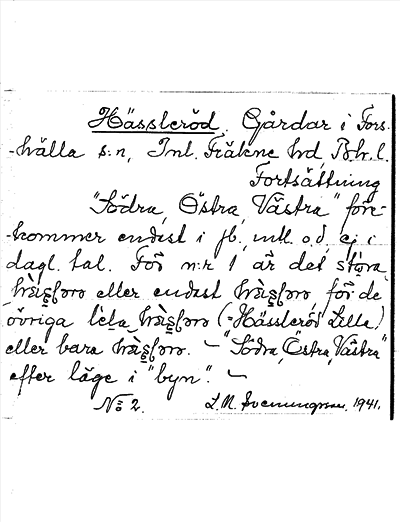 Hässleröd, Gårdar i Fors-
-hälla s:n, Inl. Fräkne hd, Boh. l.
Fortsättning
"Södra, Östra, Västra" före-
-kommer endast i jb, mtl. o.d, ej i
dagl. tal. För n:r 1 är det
eller endast för de
övriga (=Hässleröd Lilla)
eller bara — "Södra, Östra, Västra"
efter läge i "byn". —
No 2. L.M. Svenungsson. 1941.